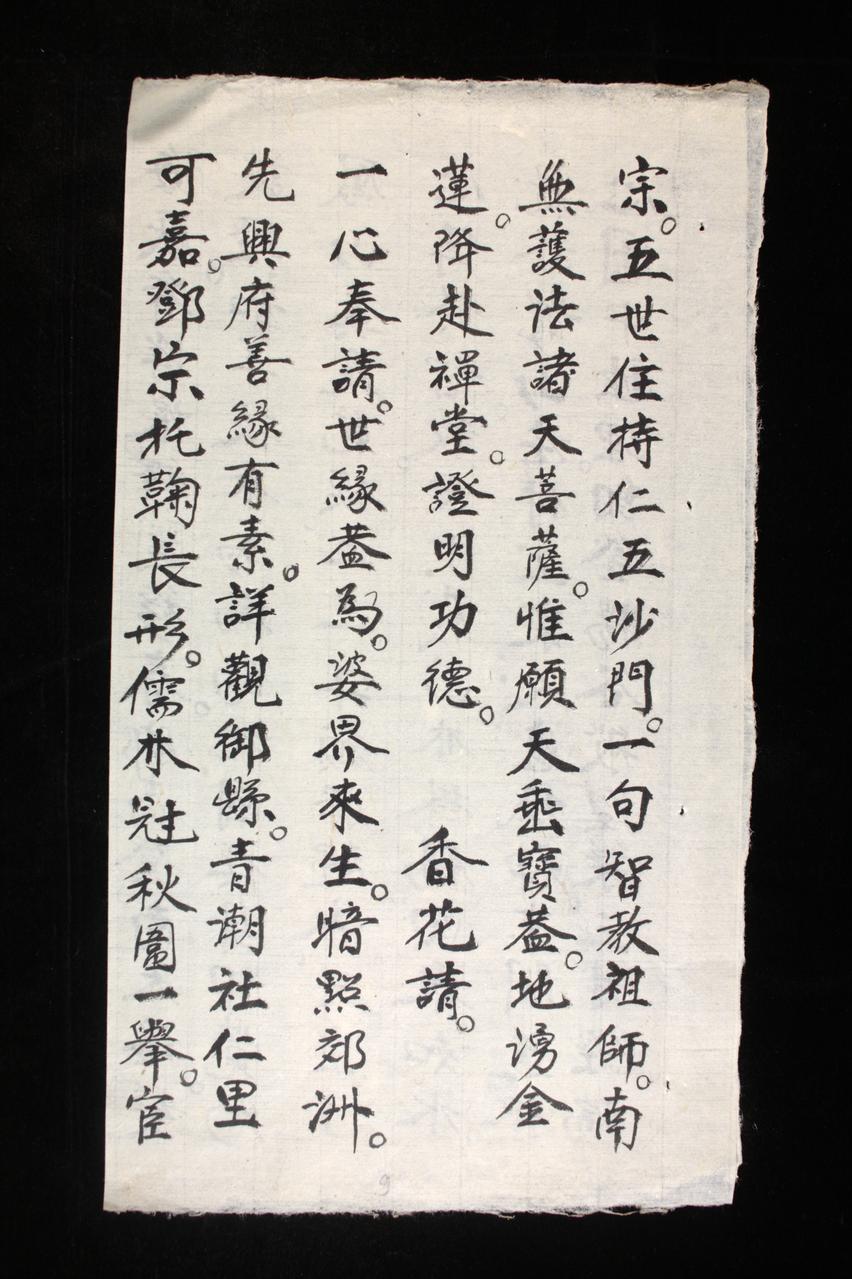 宗。五世住持仁五沙門。一句智教祖師。南
無護法諸天菩薩。惟願天垂寶蓋。地湧金
蓮。降赴禪堂。證明功德。 香花請。
一心奉請。世緣蓋為。婆界來生。暗點郊洲。
先興府善緣有素。詳觀御縣。青潮社仁里
可嘉。鄧宗托鞠長形。儒林冠秋圍一舉。宦
9